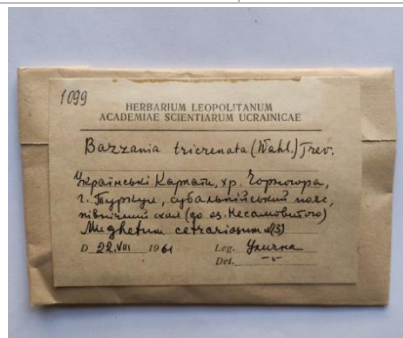 1099
HERBARIUM LEOPOLITANUM
ACADEMIAE SCIENTIARUM UCRAINICAE
Bazzania tricrenata (Wahl.) Trev.
Українські Карпати, хр. Чорногора,
г. Туркул, субальпійський пояс,
північний схил (до оз. Несамовитого)
Mughetum cetrariosum
D 22.VIII 1961 Leg. Улична
Det. -"-